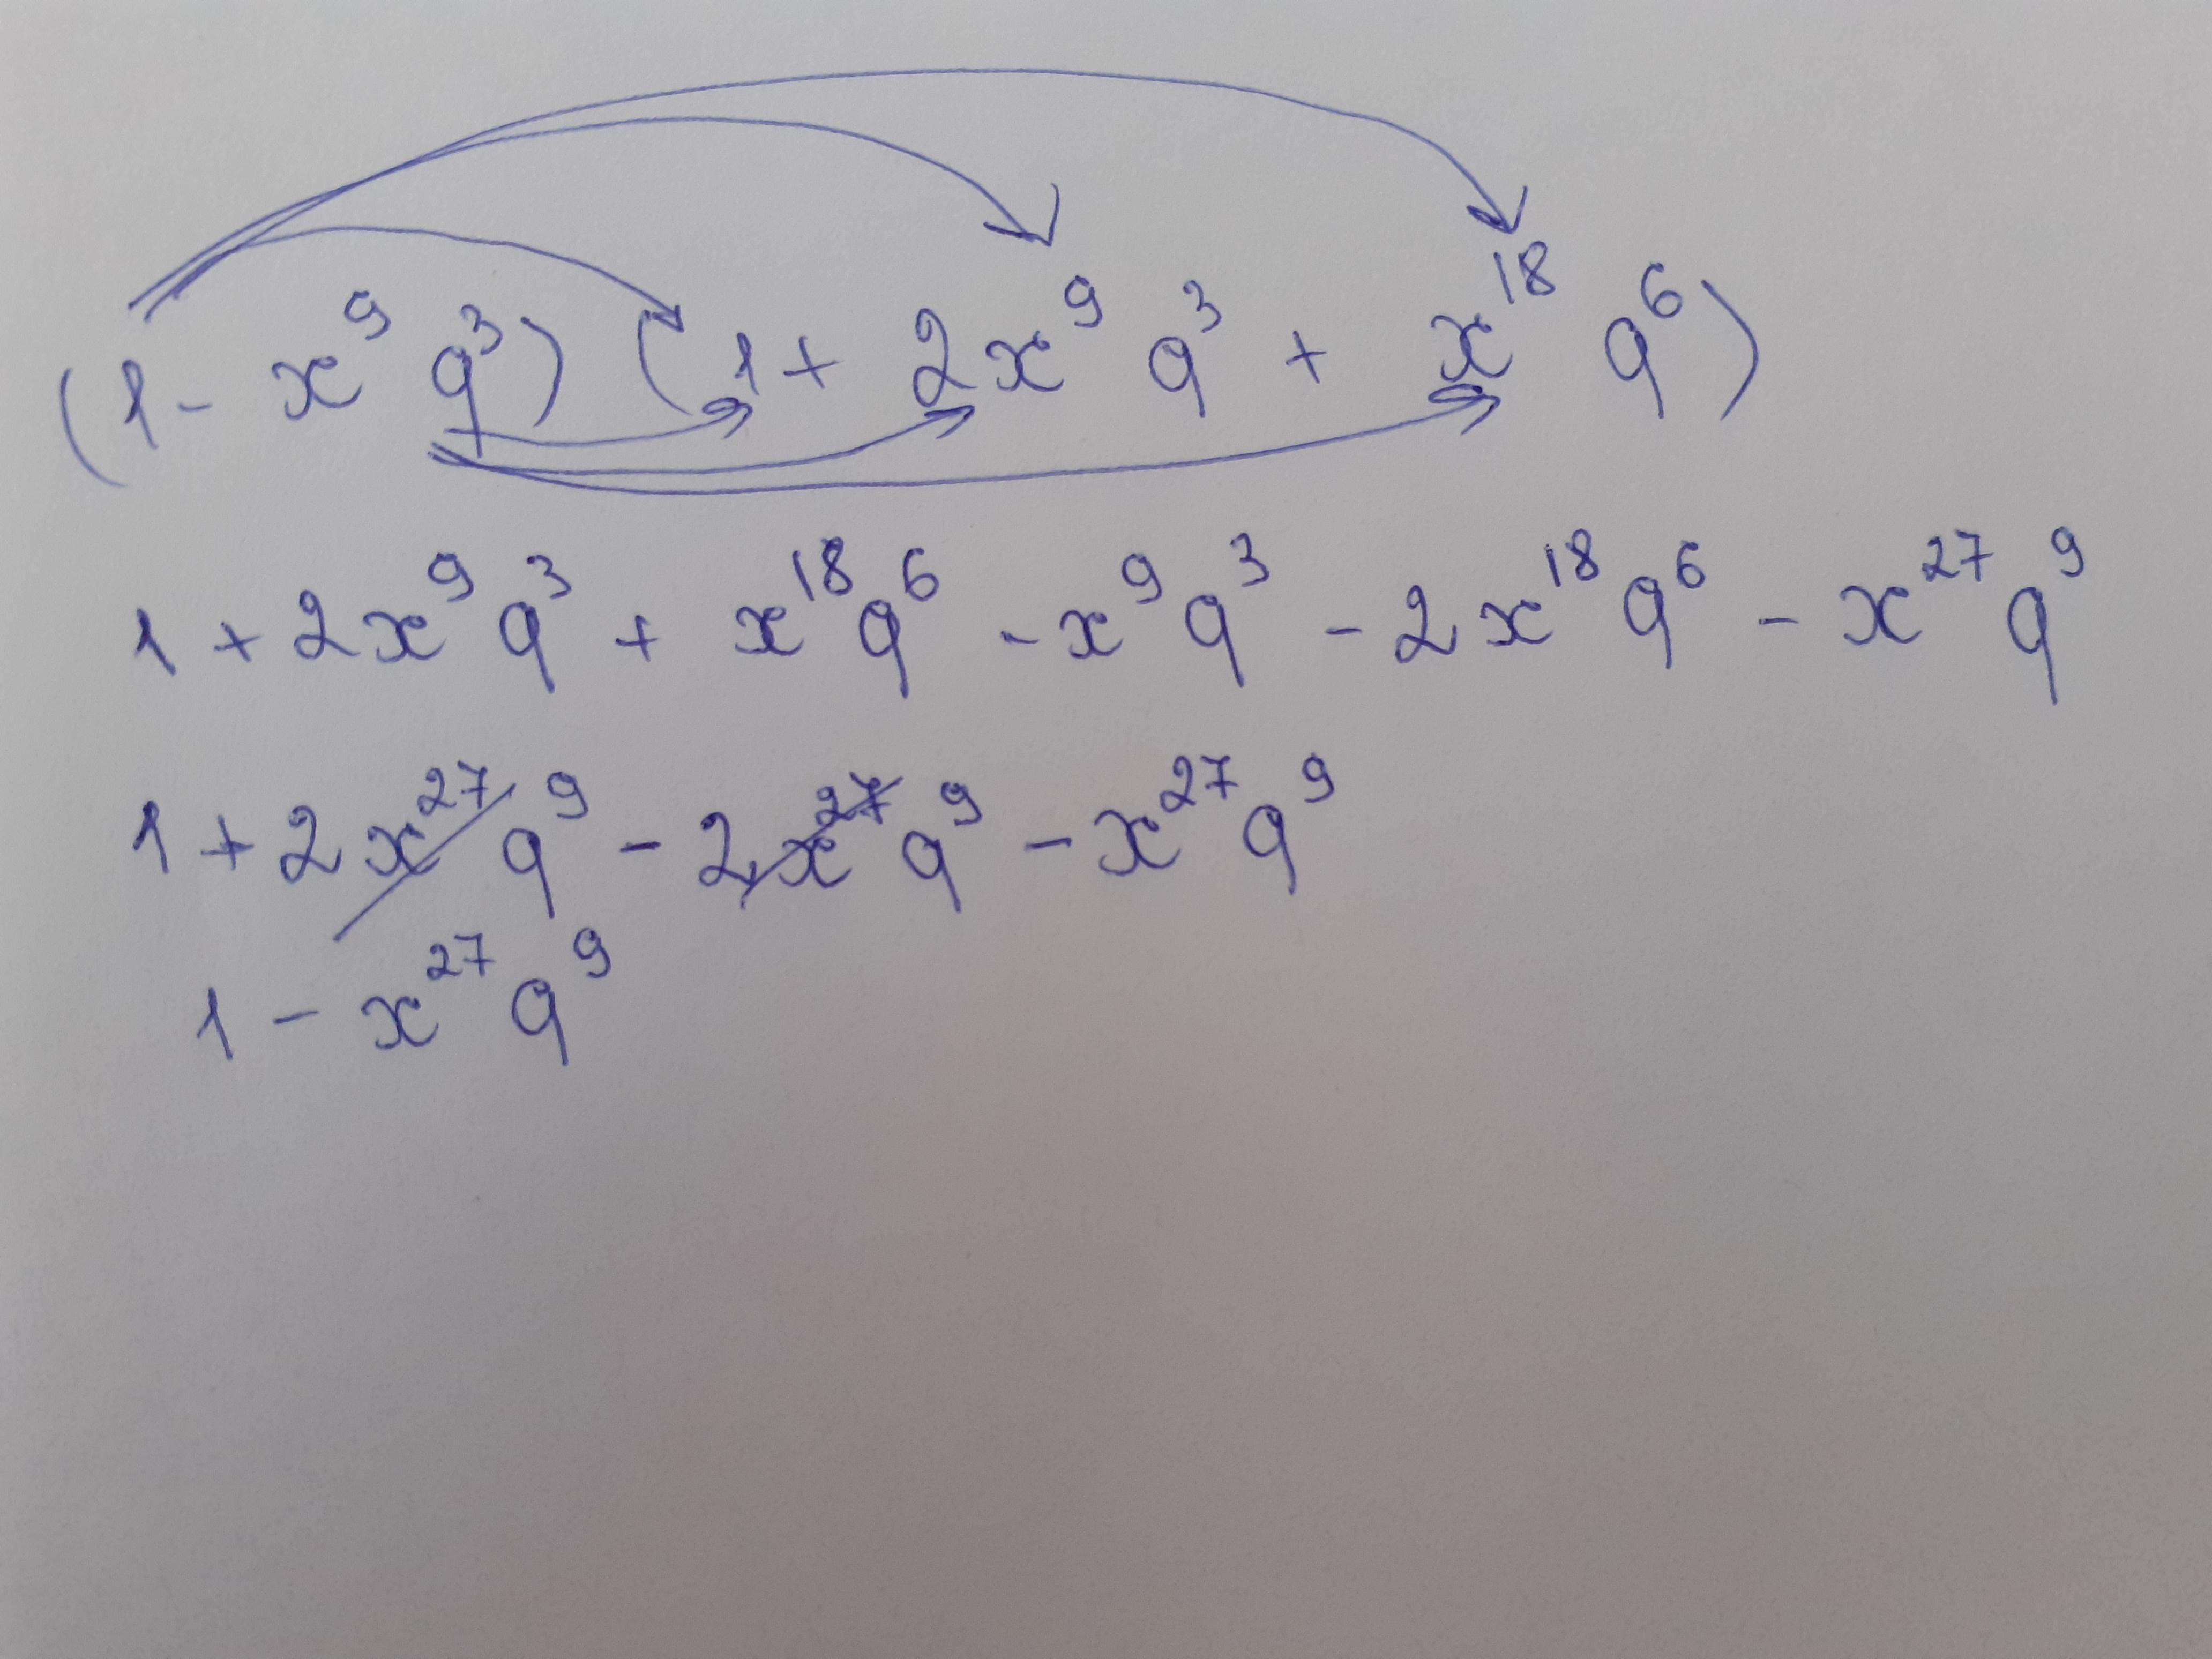 (1 - x⁹ q³) (1 + 2x⁹ q³ + x¹⁸ q⁶)
1 + 2x⁹ q³ + x¹⁸ q⁶ - x⁹ q³ - 2x¹⁸ q⁶ - x²⁷ q⁹
1 + 2x²⁷ q⁹ - 2x²⁷ q⁹ - x²⁷ q⁹
1 - x²⁷ q⁹